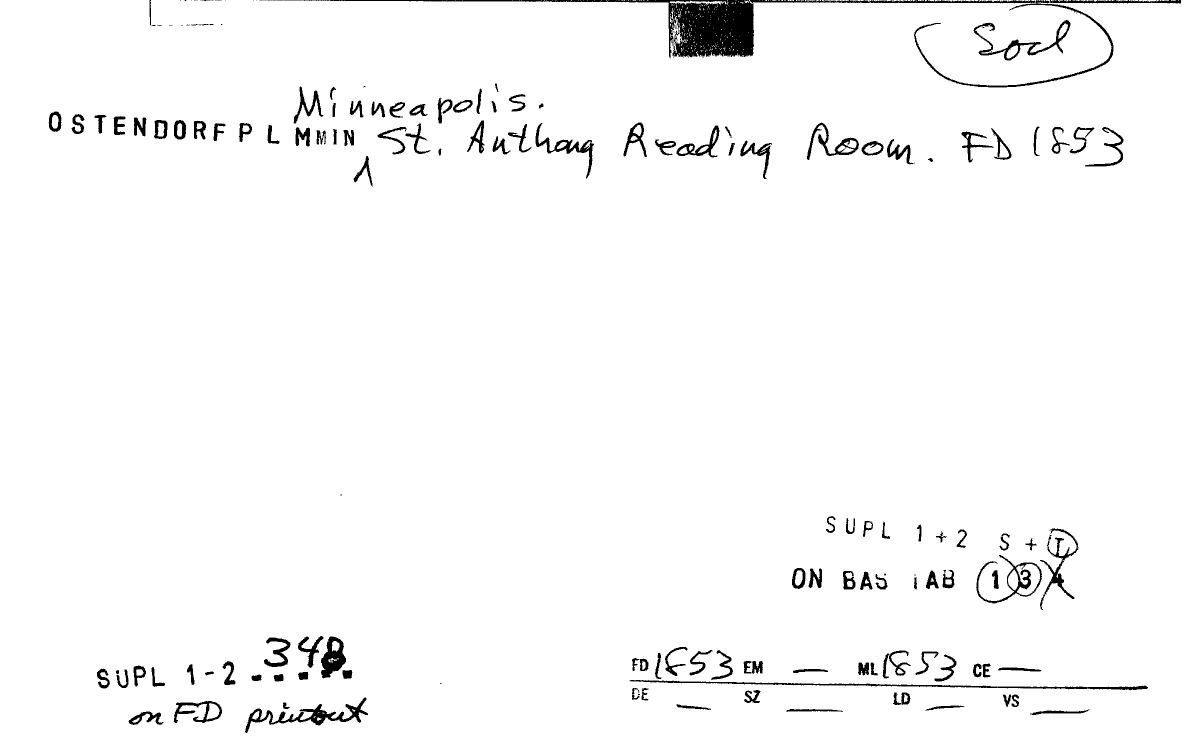 Socl
Minneapolis.
OSTENDORF P L MMIN ^ St. Anthony Reading Room. FD 1853
SUPL 1+2 S + T
ON BAS TAB 1 3 4
SUPL 1-2 348
on FD printout
FD 1853 EM — ML 1853 CE —
DE — SZ — LD — VS —